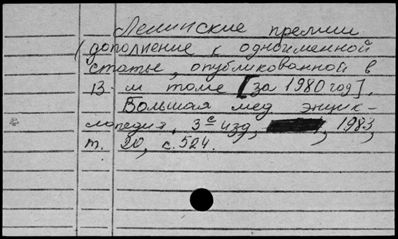 Ленинские премии
(дополнение к одноименной
статье, опубликованной в
13-м томе [за 1980 год].
Большая мед энцик-
лопедия, 3е изд, 1983,
т. 20, с. 524.